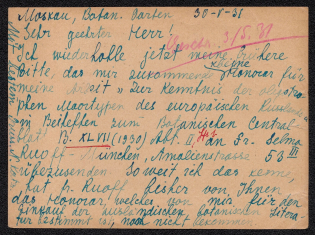 Moskau, Botan. Garten 30-V-31
Sehr geehrter Herr,
3/5. 31
Ich wiederholle jetzt meine frühere
Bitte, das mir zukommende kleine Honorar für
meine Arbeit „Zur Kenntnis der oligotro-
phen Moortypen des europäischen Russlands
in Beiheften zum Botanischen Central-
blatt B. XLVII (1930) Abt. II, an Fr. Selma
Ruoff - München, Amalienstrasse 53 III
zubezusenden Soweit ich das kenne,
hat Fr. Ruoff bisher von Ihnen
das Honorar, welches von mir für den
Einkauf der ausländischen botanischen Litera-
tur bestimmt ist, noch nicht bekommen